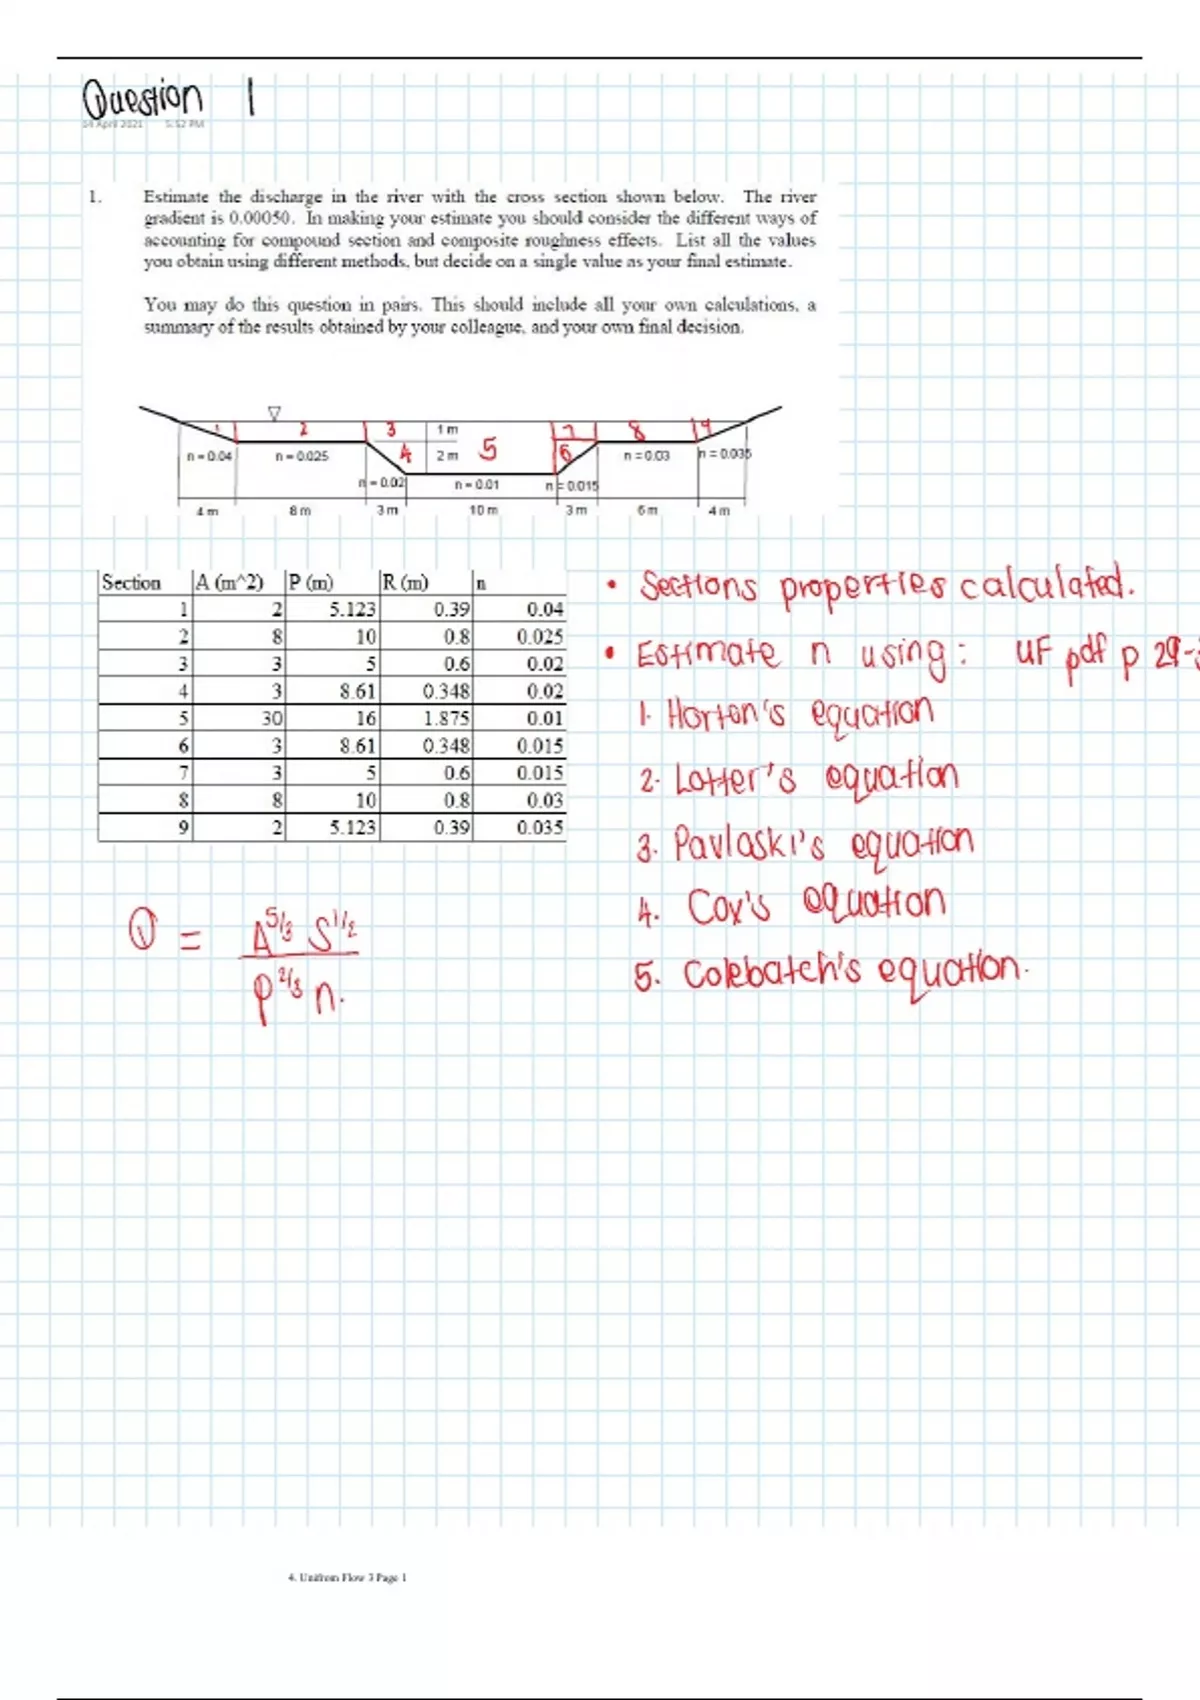 Question 1
04 April 2021 5:52 PM
1. Estimate the discharge in the river with the cross section shown below. The river
gradient is 0.00050. In making your estimate you should consider the different ways of
accounting for compound section and composite roughness effects. List all the values
you obtain using different methods, but decide on a single value as your final estimate.
You may do this question in pairs. This should include all your own calculations, a
summary of the results obtained by your colleague, and your own final decision.
1 2 3 1 m 7 8 9
n = 0.04 n = 0.025 4 2 m 5 6 n = 0.03 n = 0.035
n = 0.02 n = 0.01 n = 0.015
4 m 8 m 3 m 10 m 3 m 6 m 4 m
Section A (m^2) P (m) R (m) n
1 2 5.123 0.39 0.04
2 8 10 0.8 0.025
3 3 5 0.6 0.02
4 3 8.61 0.348 0.02
5 30 16 1.875 0.01
6 3 8.61 0.348 0.015
7 3 5 0.6 0.015
8 8 10 0.8 0.03
9 2 5.123 0.39 0.035
• Sections properties calculated.
• Estimate n using: UF pdf p 29-
1. Horton's equation
2. Lotter's equation
3. Pavlaski's equation
4. Cox's equation
5. Colebatch's equation.
Q = A^5/3 S^1/2
P^2/3 n.
4. Unifrom Flow 3 Page 1